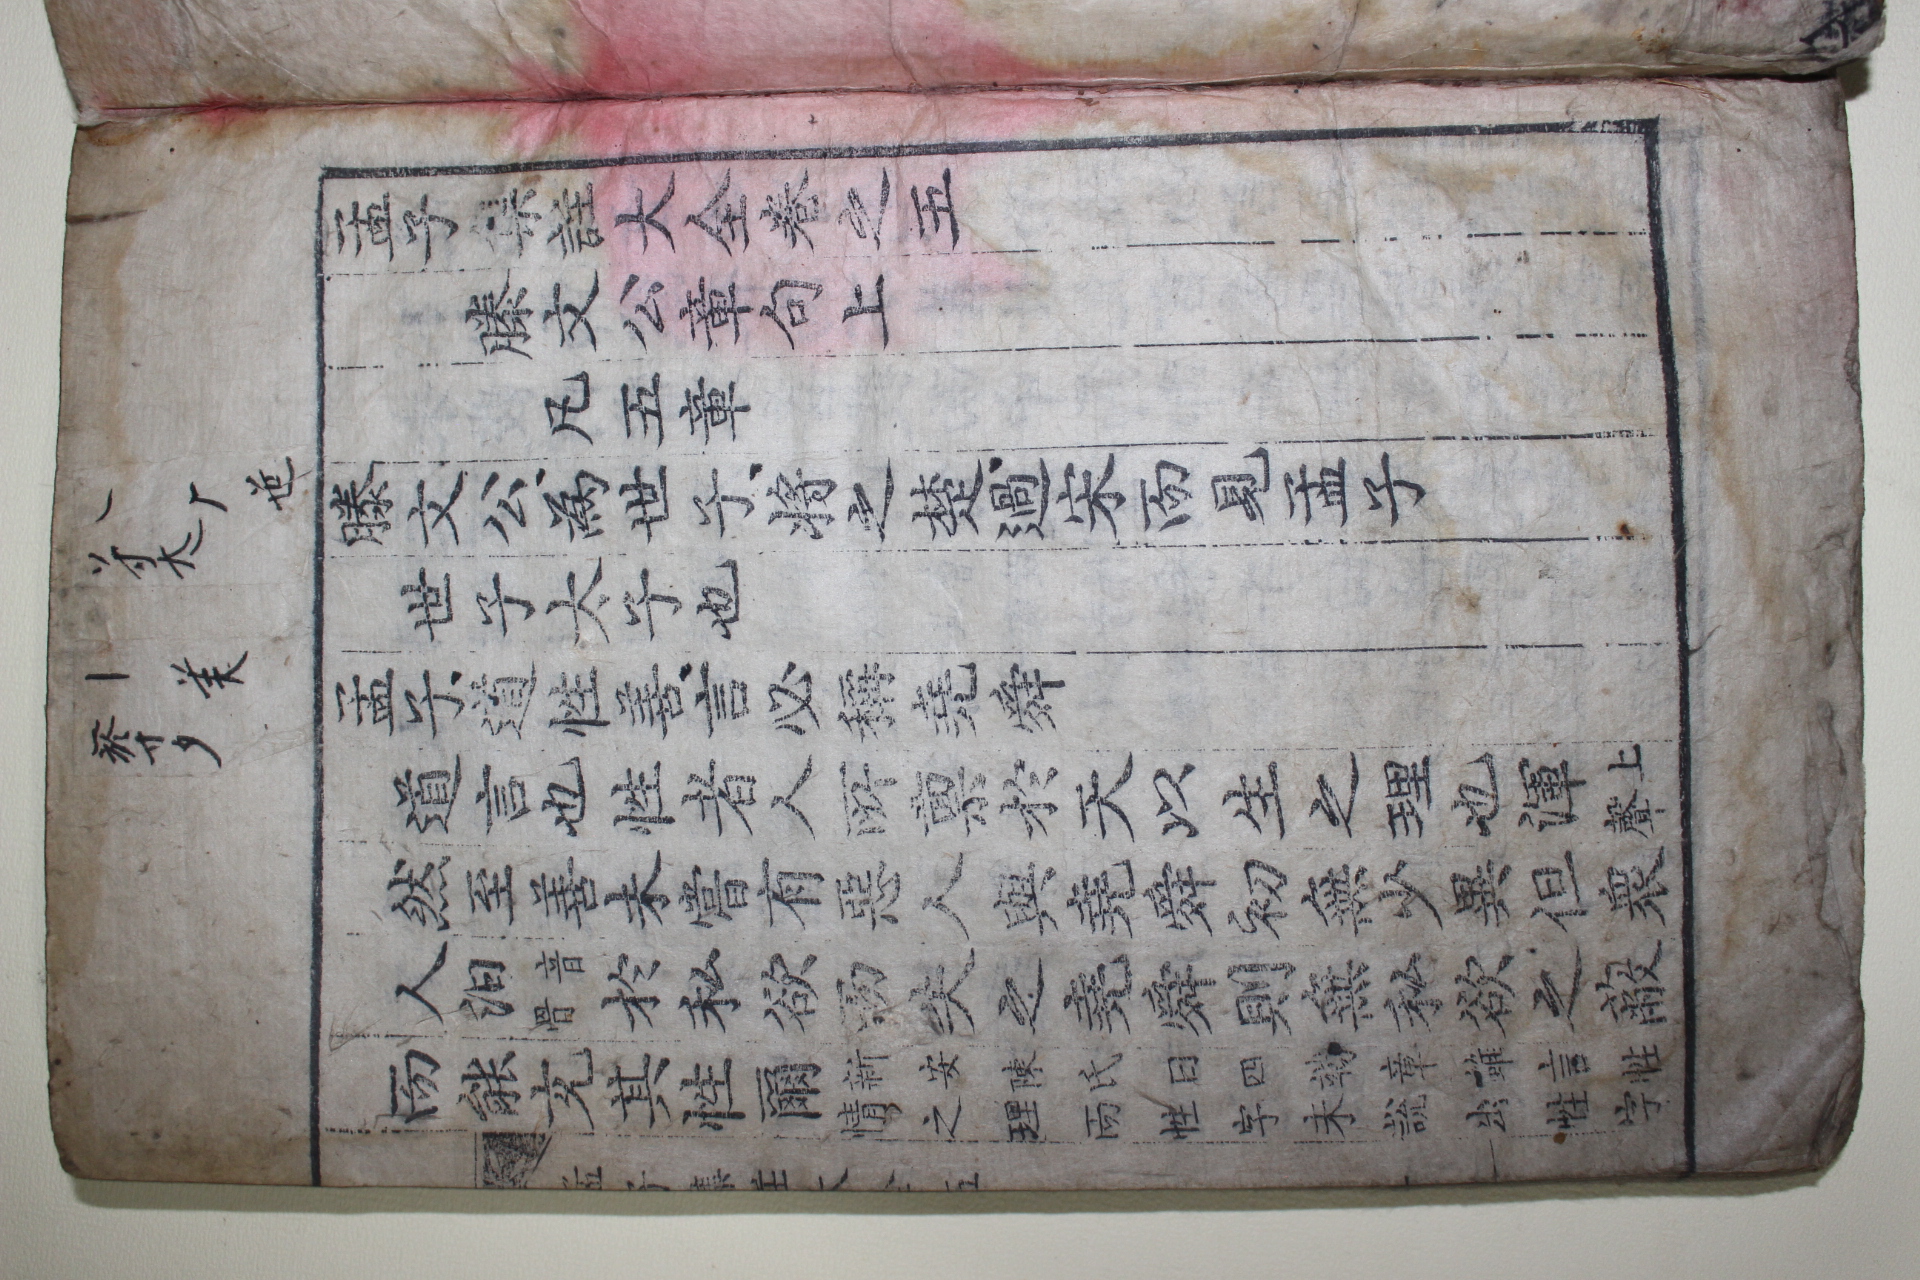 孟子集註大全卷之五
滕文公章句上
凡五章
滕文公爲世子將之楚過宋而見孟子
世子太子也
孟子道性善言必稱堯舜
道言也性者人所禀於天以生之理也渾上聲
然至善未嘗有惡人與堯舜初無少異但衆
人汨音骨於私欲而失之堯舜則無私欲之蔽
而能充其性爾新安陳氏曰四端章雖言性
情之理而性字未說出性字
孟子集註大全五